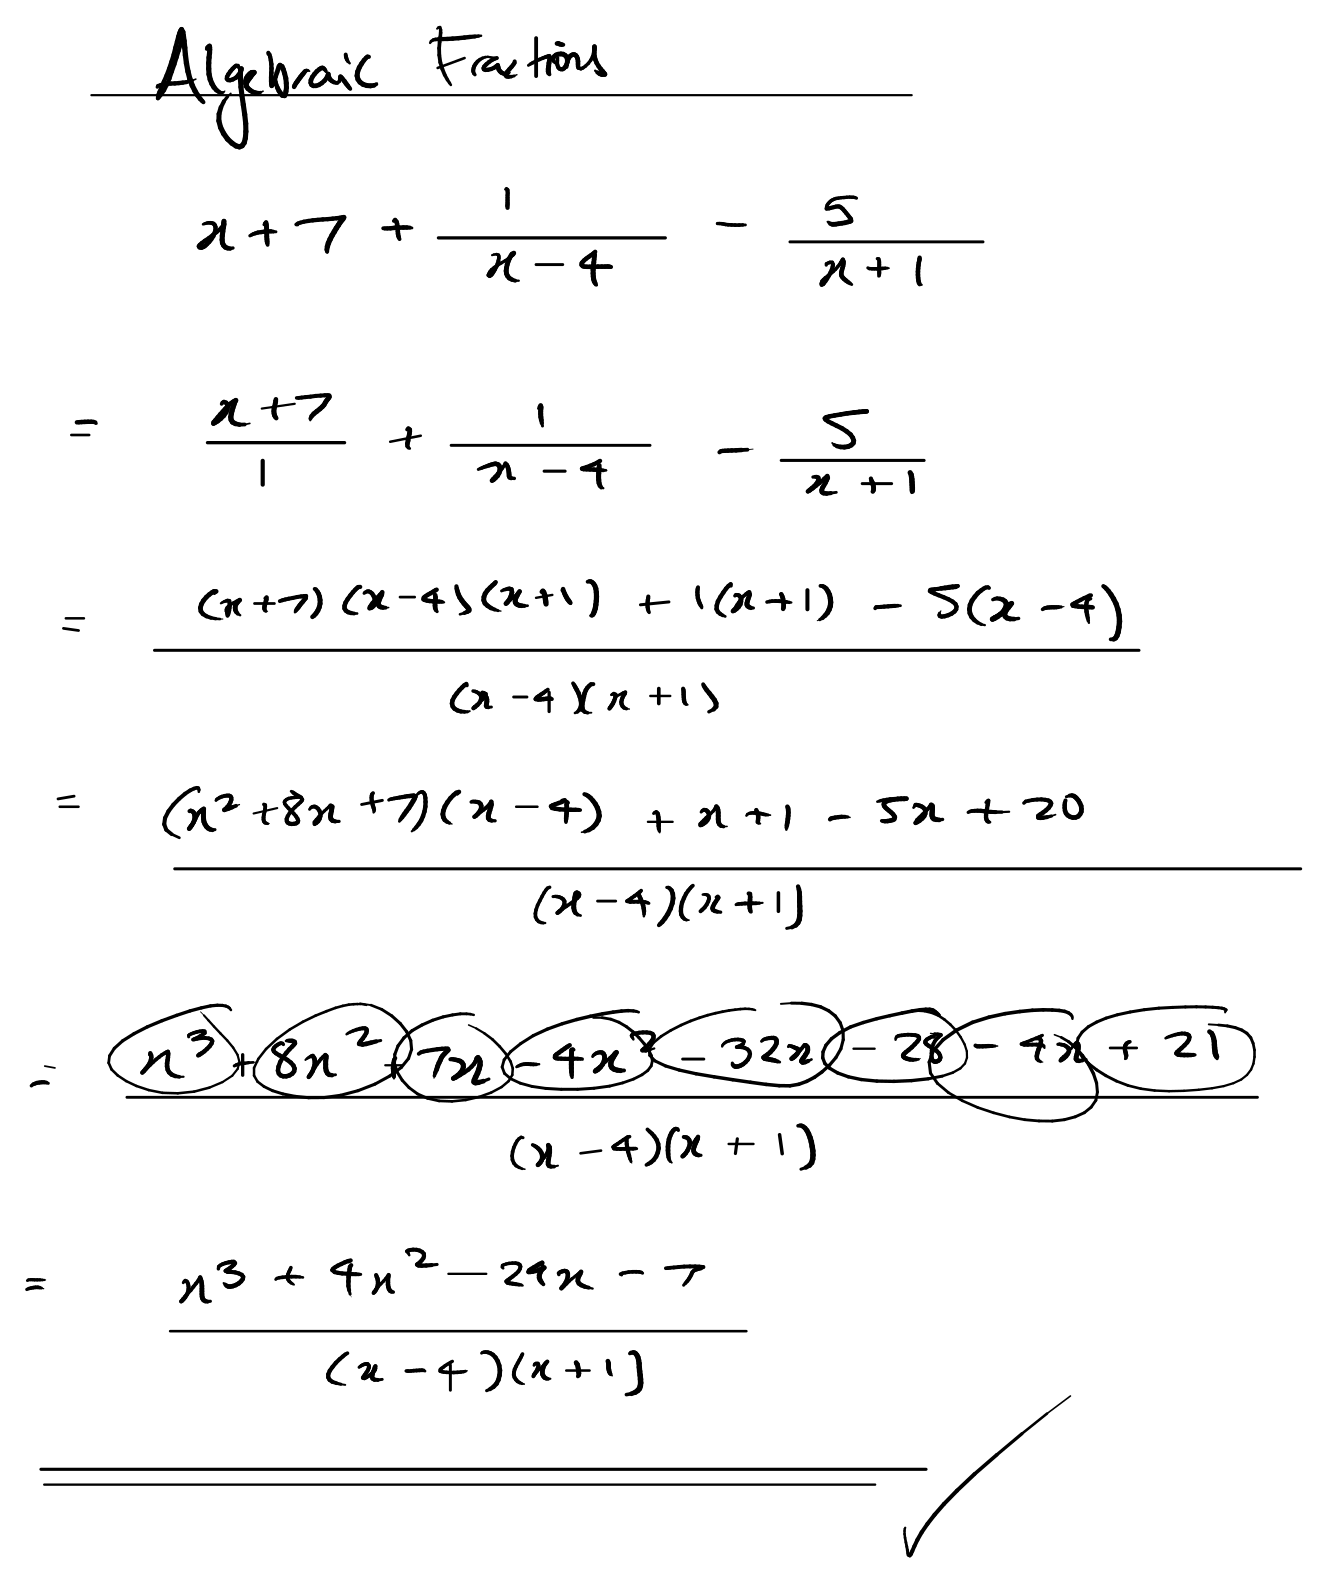 Algebraic Fractions
x + 7 + 1/(x - 4) - 5/(x + 1)
= (x + 7)/1 + 1/(x - 4) - 5/(x + 1)
= ((x+7)(x-4)(x+1) + 1(x+1) - 5(x-4))/((x-4)(x+1))
= ((x² + 8x + 7)(x - 4) + x + 1 - 5x + 20)/((x-4)(x+1))
= (x³ + 8x² + 7x - 4x² - 32x - 28 - 4x + 21)/((x-4)(x+1))
= (x³ + 4x² - 29x - 7)/((x-4)(x+1))